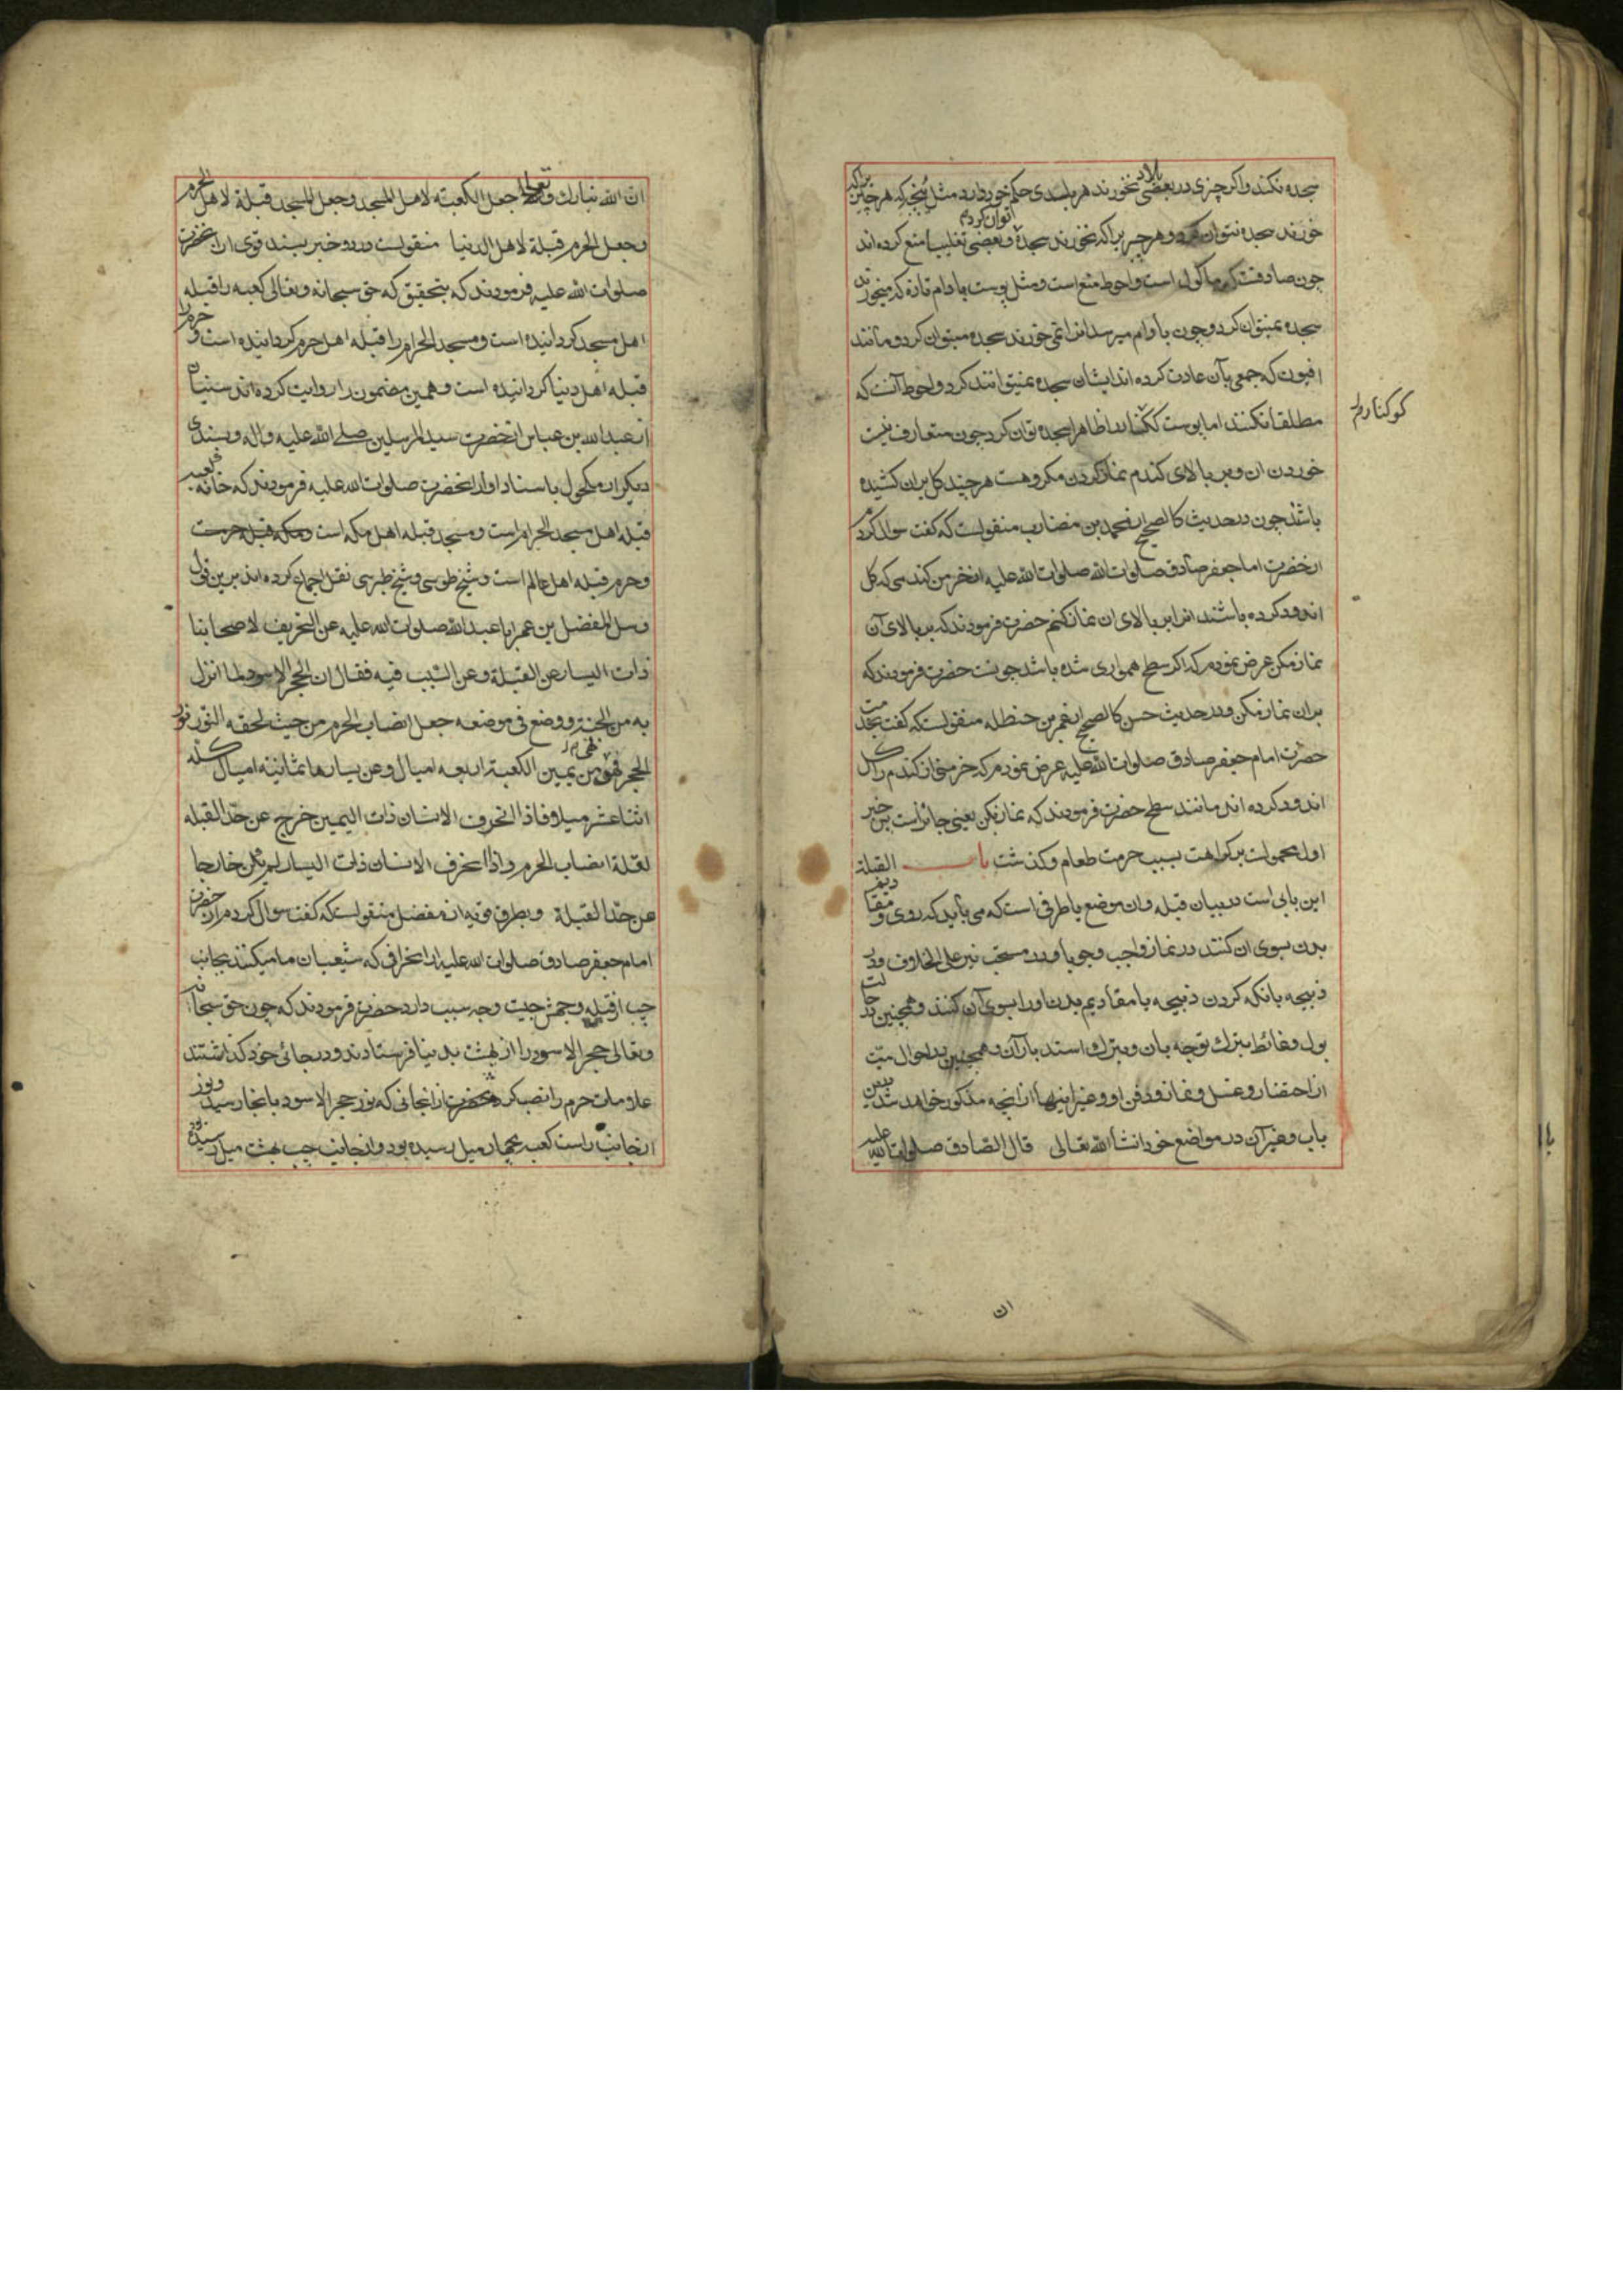 سجده نکنند واکر چیزی در بعضی بلاد نخورند هر بلدی حکم خود دارد مثل هر چیز براکه
خورند سجده نتوان کرد وهر چیز براکه نخورند سجده توان کرد وبعضی تغلیبا منع کرده اند
چون صادقست که ماکول است واحوط منع است ومثل پوست بادام تازه که میخورند
سجده نمیتوان کرد وچون بادام میرسد انرا نمی خورند سجده میتوان کرد ومانند
افیون که جمعی بآن عادت کرده اند ایشان سجده نمیتوانند کرد واحوط آنست که
مطلقا نکنند اما پوست ظاهرا سجده توان کرد چون متعارف نیست
کوکنار را
خوردن ان وبر بالای کندم نماز کردن مکروهست هر چند کل بران کشیده
باشند چون در حدیث کالصحیح از محمد بن مضارب منقولست که کفت سوال کردم
از حضرت امام جعفر صادق صلوات الله صلوات الله علیه از خرمن کندمی که کل
اندود کرده باشند ایا بر بالای ان نماز کنم حضرت فرمودند که بر بالای آن
نماز مکن عرض نمودم که اکر سطح همواری شده باشد چونست حضرت فرمودند که
بران نماز مکن ودر حدیث حسن کالصحیح از عمر بن حنظله منقولست که کفت بخدمت
حضرت امام جعفر صادق صلوات الله علیه عرض نمودم که خرمنی از کندم را کل
اندود کرده اند مانند سطح حضرت فرمودند که نماز بکن یعنی جائز است پس خبر
اول محمولست بر کراهت بسبب حرمت طعام وکذشت باب القبلة
این بابی است در بیان قبله وان موضع یا طرفی است که می باید که روی ومقادیم
بدن بسوی ان کنند در نماز واجب وجوبا ودر مستحب نیز علی الخلاف ودر
ذبیحه بانکه کردن ذبیحه با مقادیم بدن اورا بسوی آن کنند وهمچنین در حالت
بول وغائط بترک توجه بان وبترک استدبار آن وهمچنین در احوال میّت
از احتضار وغسل ونماز ودفن او وغیر اینها از انچه مذکور خواهد شد در این
باب وغیر آن در مواضع خود انشأ الله تعالی قال الصّادق صلوات الله علیه
ان
ان الله تبارك وتعالی جعل الکعبة لاهل المسجد وجعل المسجد قبلة لاهل الحرم
وجعل الحرم قبلة لاهل الدنیا منقولست در دو خبر بسند قوی از انحضرت
صلوات الله علیه فرمودند که بتحقیق که حق سبحانه وتعالی کعبه را قبله
اهل مسجد کردانیده است ومسجد الحرام را قبله اهل حرم کردانیده است وحرم را
قبله اهل دنیا کردانیده است وهمین مضمون را روایت کرده اند سنیان
از عبدالله بن عباس از حضرت سید المرسلین صلی الله علیه واله وبسندی
دیکر از مکحول باسناد او از انحضرت صلوات الله علیه فرمودند که خانه کعبه
قبله اهل مسجد الحرام است ومسجد قبله اهل مکه است
وحرم قبله اهل عالم است وشیخ طوسی وشیخ طبرسی نقل اجماع کرده اند برین قول
وسل المفضل بن عمر ابا عبدالله صلوات الله علیه عن التحریف لاصحابنا
ذات الیسار عن القبلة وعن السّبب فیه فقال ان الحجر الاسود لما انزل
به من الجنة ووضع فی موضعه جعل انصاب الحرم من حیث لحقه النور نور
الحجر فهی عن یمین الکعبة اربعه امیال وعن یسارها ثمانیة امیال کله
اثنا عشر میلا فاذا انحرف الانسان ذات الیمین خرج عن حدّ القبله
لقلة انصاب الحرم واذا انحرف الانسان ذات الیسار لم یکن خارجا
عن حدّ القبلة وبطرق قویه از مفضل منقولست که کفت سوال کردم از حضرت
امام جعفر صادق صلوات الله علیه از انحرافی که شیعیان ما میکنند بجانب
چپ از قبله وجهش چیست وچه سبب دارد حضرت فرمودند که چون حق سبحانه
وتعالی حجر الاسود را از بهشت بدنیا فرستادند ودر جائی خود کذاشتند
علامات حرم را نصب کردند از انجائی که نور حجر الاسود بانجا رسید ونور
از جانب راست کعبه چهار میل رسیده بود واز جانب چپ هشت میل رسیده بود